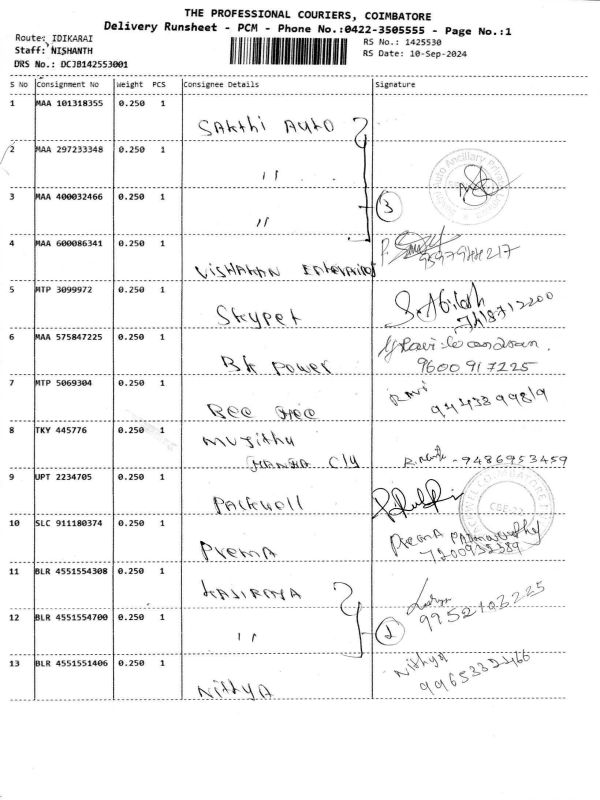 THE PROFESSIONAL COURIERS, COIMBATORE
Delivery Runsheet - PCM - Phone No.:0422-3505555 - Page No.:1
Route: IDIKARAI
RS No.: 1425530
Staff: NISHANTH
RS Date: 10-Sep-2024
DRS No.: DCJB142553001
S No Consignment No Weight PCS Consignee Details Signature
1 MAA 101318355 0.250 1
Sakthi Auto
2 MAA 297233348 0.250 1
"
3 MAA 400032466 0.250 1
" 3
4 MAA 600086341 0.250 1
VISHAKAN
5 MTP 3099972 0.250 1
Skypet
6 MAA 575847225 0.250 1
BK Power 9600917225
7 MTP 5069304 0.250 1
Bee Gee
8 TKY 445776 0.250 1
9486953459
9 UPT 2234705 0.250 1
Packwell
10 SLC 911180374 0.250 1
Prema Prema
11 BLR 4551554308 0.250 1
12 BLR 4551554700 0.250 1
"
13 BLR 4551551406 0.250 1
Nithya Nithya